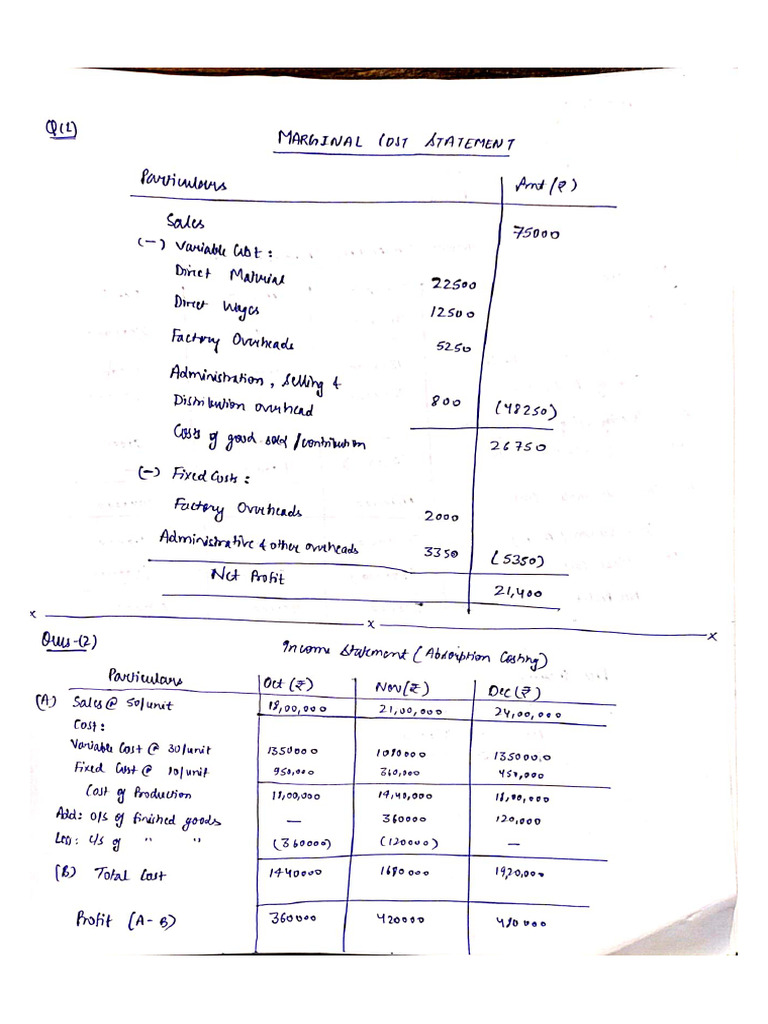 Q(1)
MARGINAL COST STATEMENT
Particulars Amt (₹)
Sales 75000
(-) Variable Cost :
Direct Material 22500
Direct Wages 12500
Factory Overheads 5250
Administration, Selling &
Distribution overhead 800 (48250)
Costs of good sold / contribution 26750
(-) Fixed Costs :
Factory Overheads 2000
Administrative & other overheads 3350 (5350)
Net Profit 21,400
x x x
Ques-(2) Income Statement (Absorption Costing)
Particulars Oct (₹) Nov (₹) Dec (₹)
(A) Sales @ 50/unit 18,00,000 21,00,000 24,00,000
Cost :
Variable Cost @ 30/unit 1350000 1080000 1350000
Fixed Cost @ 10/unit 450,000 360,000 450,000
Cost of Production 18,00,000 14,40,000 18,00,000
Add: O/s of finished goods — 360000 120,000
Less: C/s of " " (360000) (120000) —
(B) Total Cost 1440000 1680000 1920,000
Profit (A-B) 360000 420000 480000